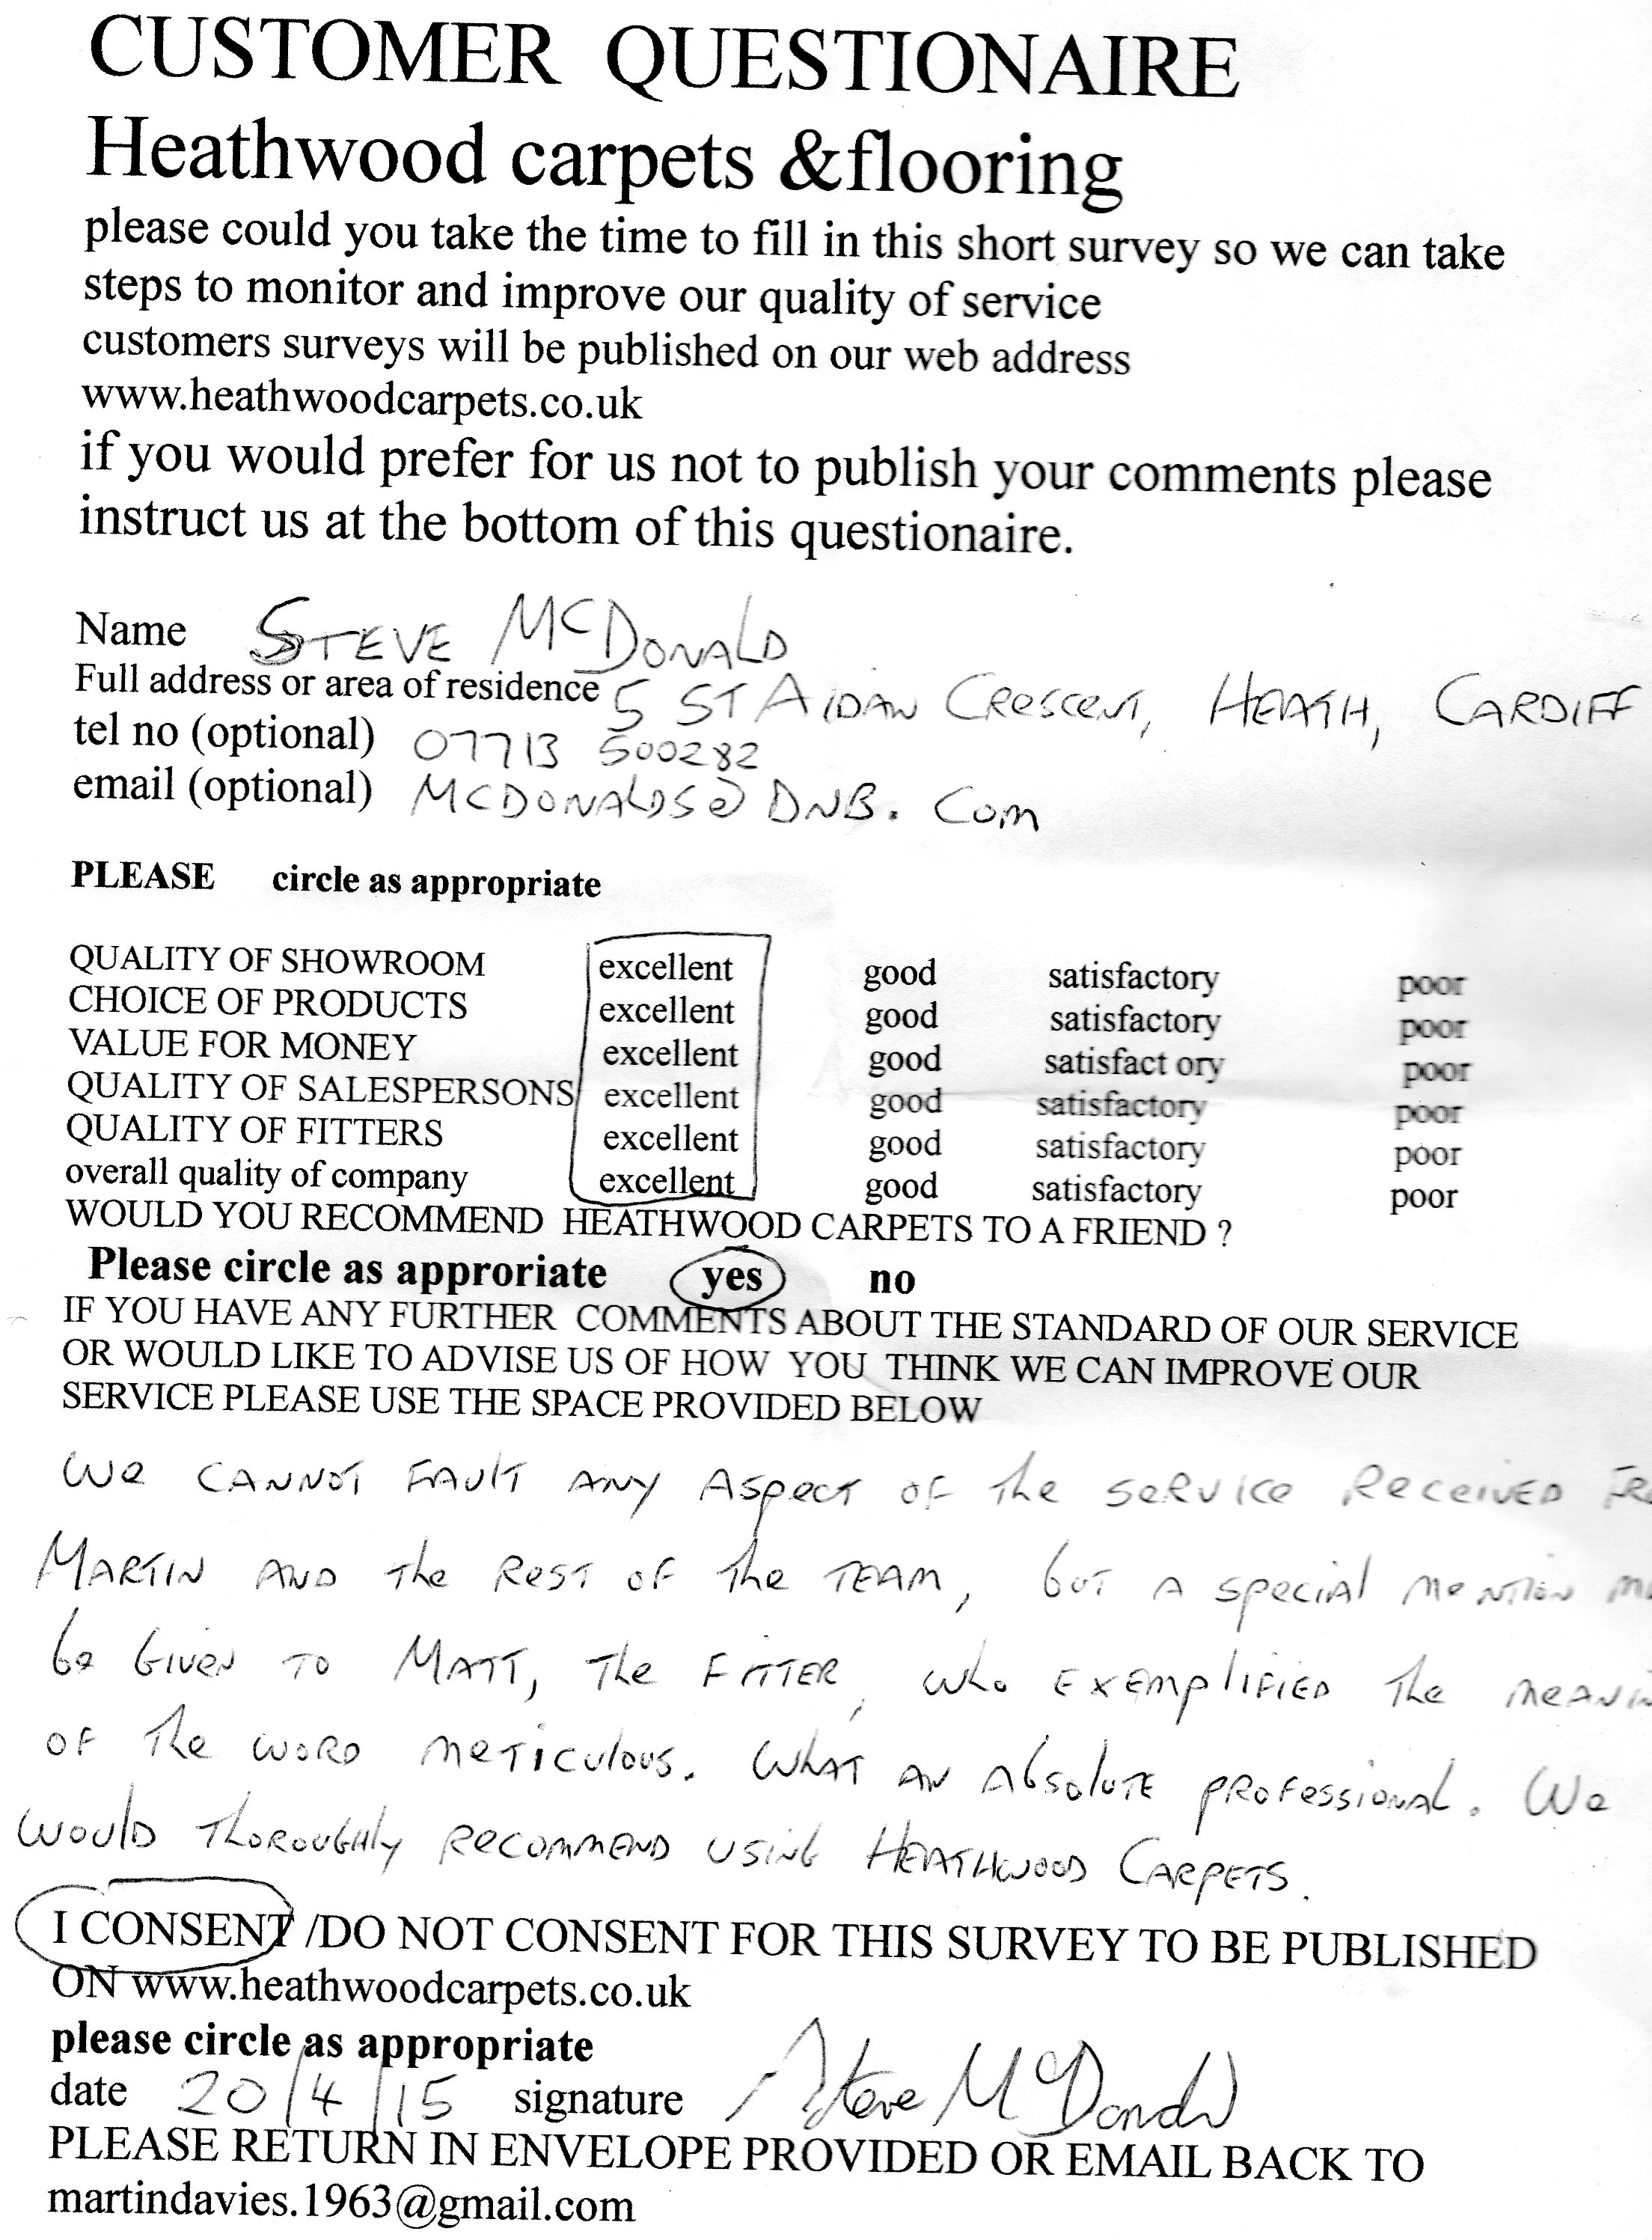 CUSTOMER QUESTIONAIRE
Heathwood carpets &flooring
please could you take the time to fill in this short survey so we can take
steps to monitor and improve our quality of service
customers surveys will be published on our web address
www.heathwoodcarpets.co.uk
if you would prefer for us not to publish your comments please
instruct us at the bottom of this questionaire.
Name STEVE MCDONALD
Full address or area of residence 5 ST AIDAN CRESCENT, HEATH, CARDIFF
tel no (optional) 07713 500282
email (optional) MCDONALDS@DNB.Com
PLEASE circle as appropriate
QUALITY OF SHOWROOM excellent good satisfactory poor
CHOICE OF PRODUCTS excellent good satisfactory poor
VALUE FOR MONEY excellent good satisfact ory poor
QUALITY OF SALESPERSONS excellent good satisfactory poor
QUALITY OF FITTERS excellent good satisfactory poor
overall quality of company excellent good satisfactory poor
WOULD YOU RECOMMEND HEATHWOOD CARPETS TO A FRIEND ?
Please circle as approriate yes no
IF YOU HAVE ANY FURTHER COMMENTS ABOUT THE STANDARD OF OUR SERVICE
OR WOULD LIKE TO ADVISE US OF HOW YOU THINK WE CAN IMPROVE OUR
SERVICE PLEASE USE THE SPACE PROVIDED BELOW
We CANNOT FAULT ANY ASPECT OF The SERVICE RECEIVED
MARTIN AND The REST OF The TEAM, but A special mention
be Given TO MATT, The FITTER, who EXEMPLIFIED The
OF The WORD METICULOUS. WHAT AN Absolute PROFESSIONAL. We
would Thoroughly RECOMMEND USING HEATHWOOD CARPETS.
I CONSENT /DO NOT CONSENT FOR THIS SURVEY TO BE PUBLISHED
ON www.heathwoodcarpets.co.uk
please circle as appropriate
date 20/4/15 signature Steve McDonald
PLEASE RETURN IN ENVELOPE PROVIDED OR EMAIL BACK TO
martindavies.1963@gmail.com